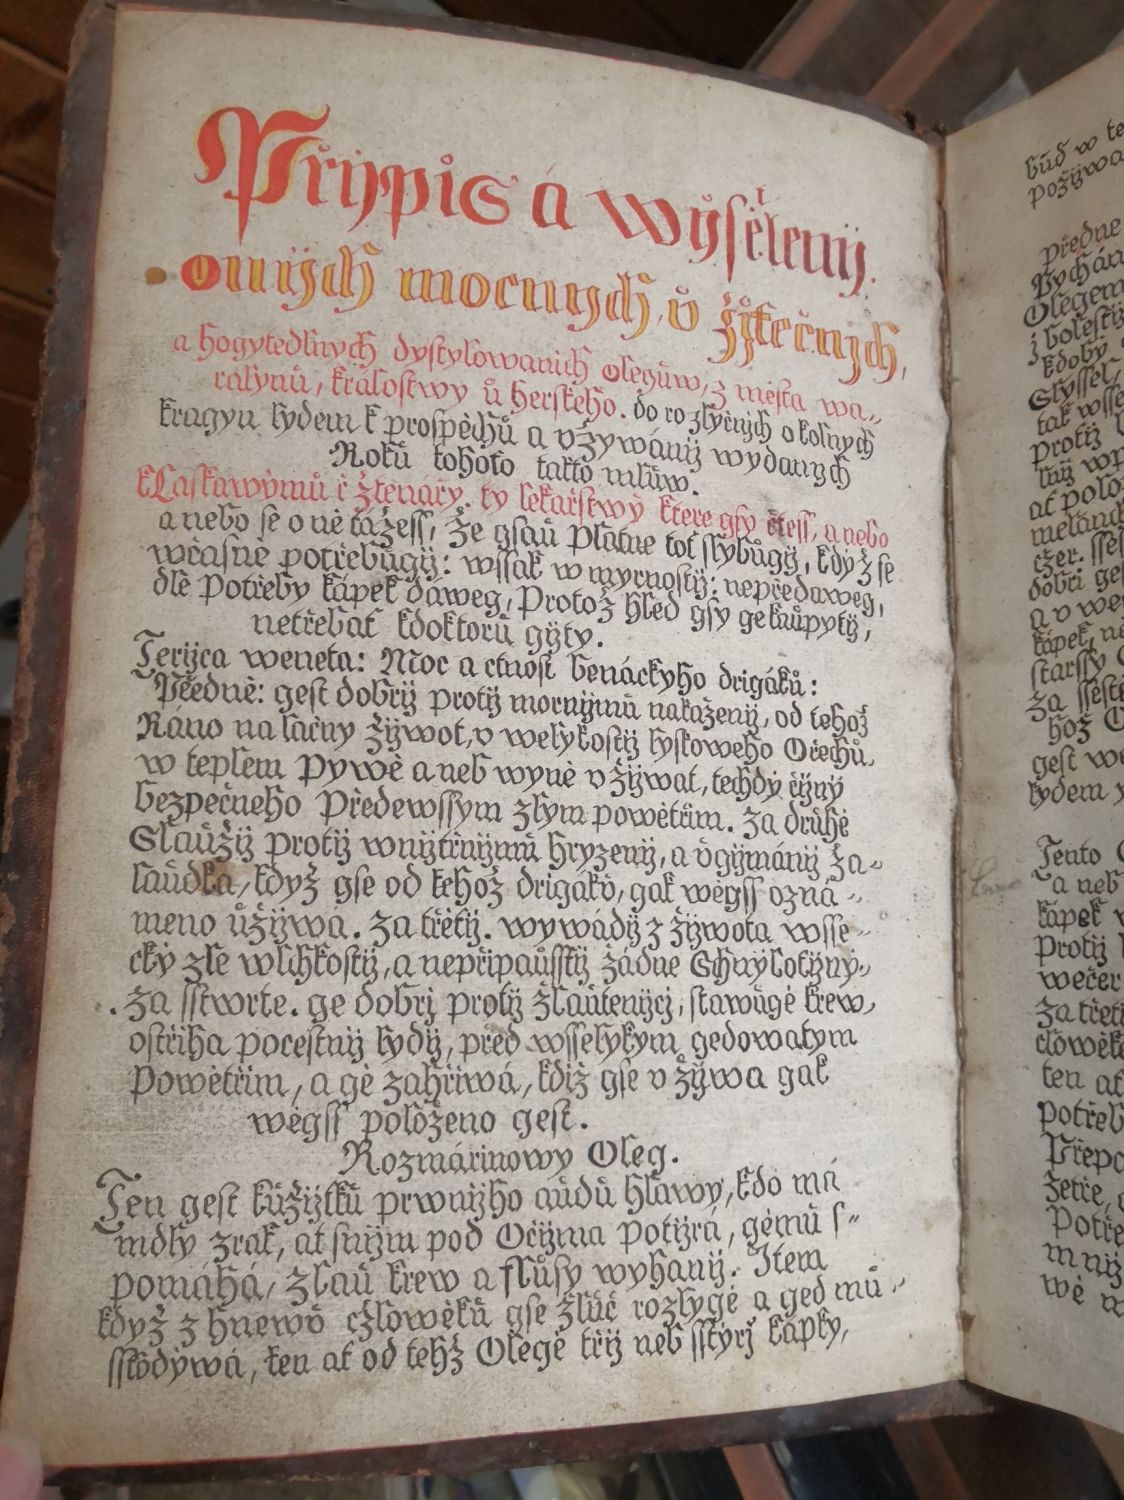 Przypis á wyſělenij.
onijch mocnych, ů žijtečnijch,
a hogytedlnych dyſtylowanich olegůw, z měſta wa„
ralynů, králoſtwy ů herſkého. do rozlyčných okolnych
kragyn lydem k proſpěchů a vžywánij wydanych
Roků tohoto takto mlůw.
kLaſkawýmů čžtenáři. ty lekařſtwý které gſy čteſſ, a nebo
a nebo ſe o ně tážeſſ, Že gſaů platne toť ſlybůgij, kdýž ſe
wčaſně potřebůgij: wſſak w myrnoſtij: nepředaweg,
dlě Potřeby kápek dáweg, Protož hled gſy ge kaůpytij,
netřebať kdoktorů gijty.
Terijca weneta: Moc a ctnoſt benáckyho drigáků:
Předně: geſt dobrij protij mornijmů nakaženij, od tehož
Ráno na lačny žijwot, v welykoſtij lyſkoweho Ořechů,
w teplém Pywě a neb wyně vžijwat, tehdý čijný
bezpečneho Předewſſym zlym powětřim. Za drůhé
Slaůžij protij wnijtřnijmů hryzenij, a vgijmánij ža„
laůdka, když gſe od tehož drigáků, gak wégſſ ozná„
meno ůžijwá. Za třetij. wywádij z žijwota wſſe„
cký zle wlchkoſtij, a nepřipaůſſtij žádne Schnijlotijny„
. Za ſſtwrte. ge dobrj protij žlaůtenijcj, ſtawůgé krew,
oſtřiha poceſtnij lydij, před wſſelykym gedowatym
Powětřim, a gé zahřiwá, kdiž gſe vžijwa gak
wégſſ položeno geſt.
Rozmárinowy Oleg.
Ten geſt kůžijtků prwnijho aůdů hlawy, kdo má
mdly zrak, at ſnijm pod Očijma potijrá, gémů ſ„
pomáhá, zlaů krew a flůſy wyhanij. Item
když z hnewů čžlowěků gſe žlůč rozlygé a ged mů„
ſſkodýwá, ten at od tehž Olegé třij neb ſſtyrj kápky,
bůď w te
požijwa
předně
Olegem
z boleſtij
kdoby
Slyſſel,
tak wſſe
protij
at polo
dobrj ge
a v we
kápek, ně
ſtarſſy
za ſſeſté
hož
geſt we
lydem
Tento
a neb
kápek
Protij
wečer
Za třetí
člowěka
ten at
potřeb
Přepo
žetře,
Potře
mnij
wě